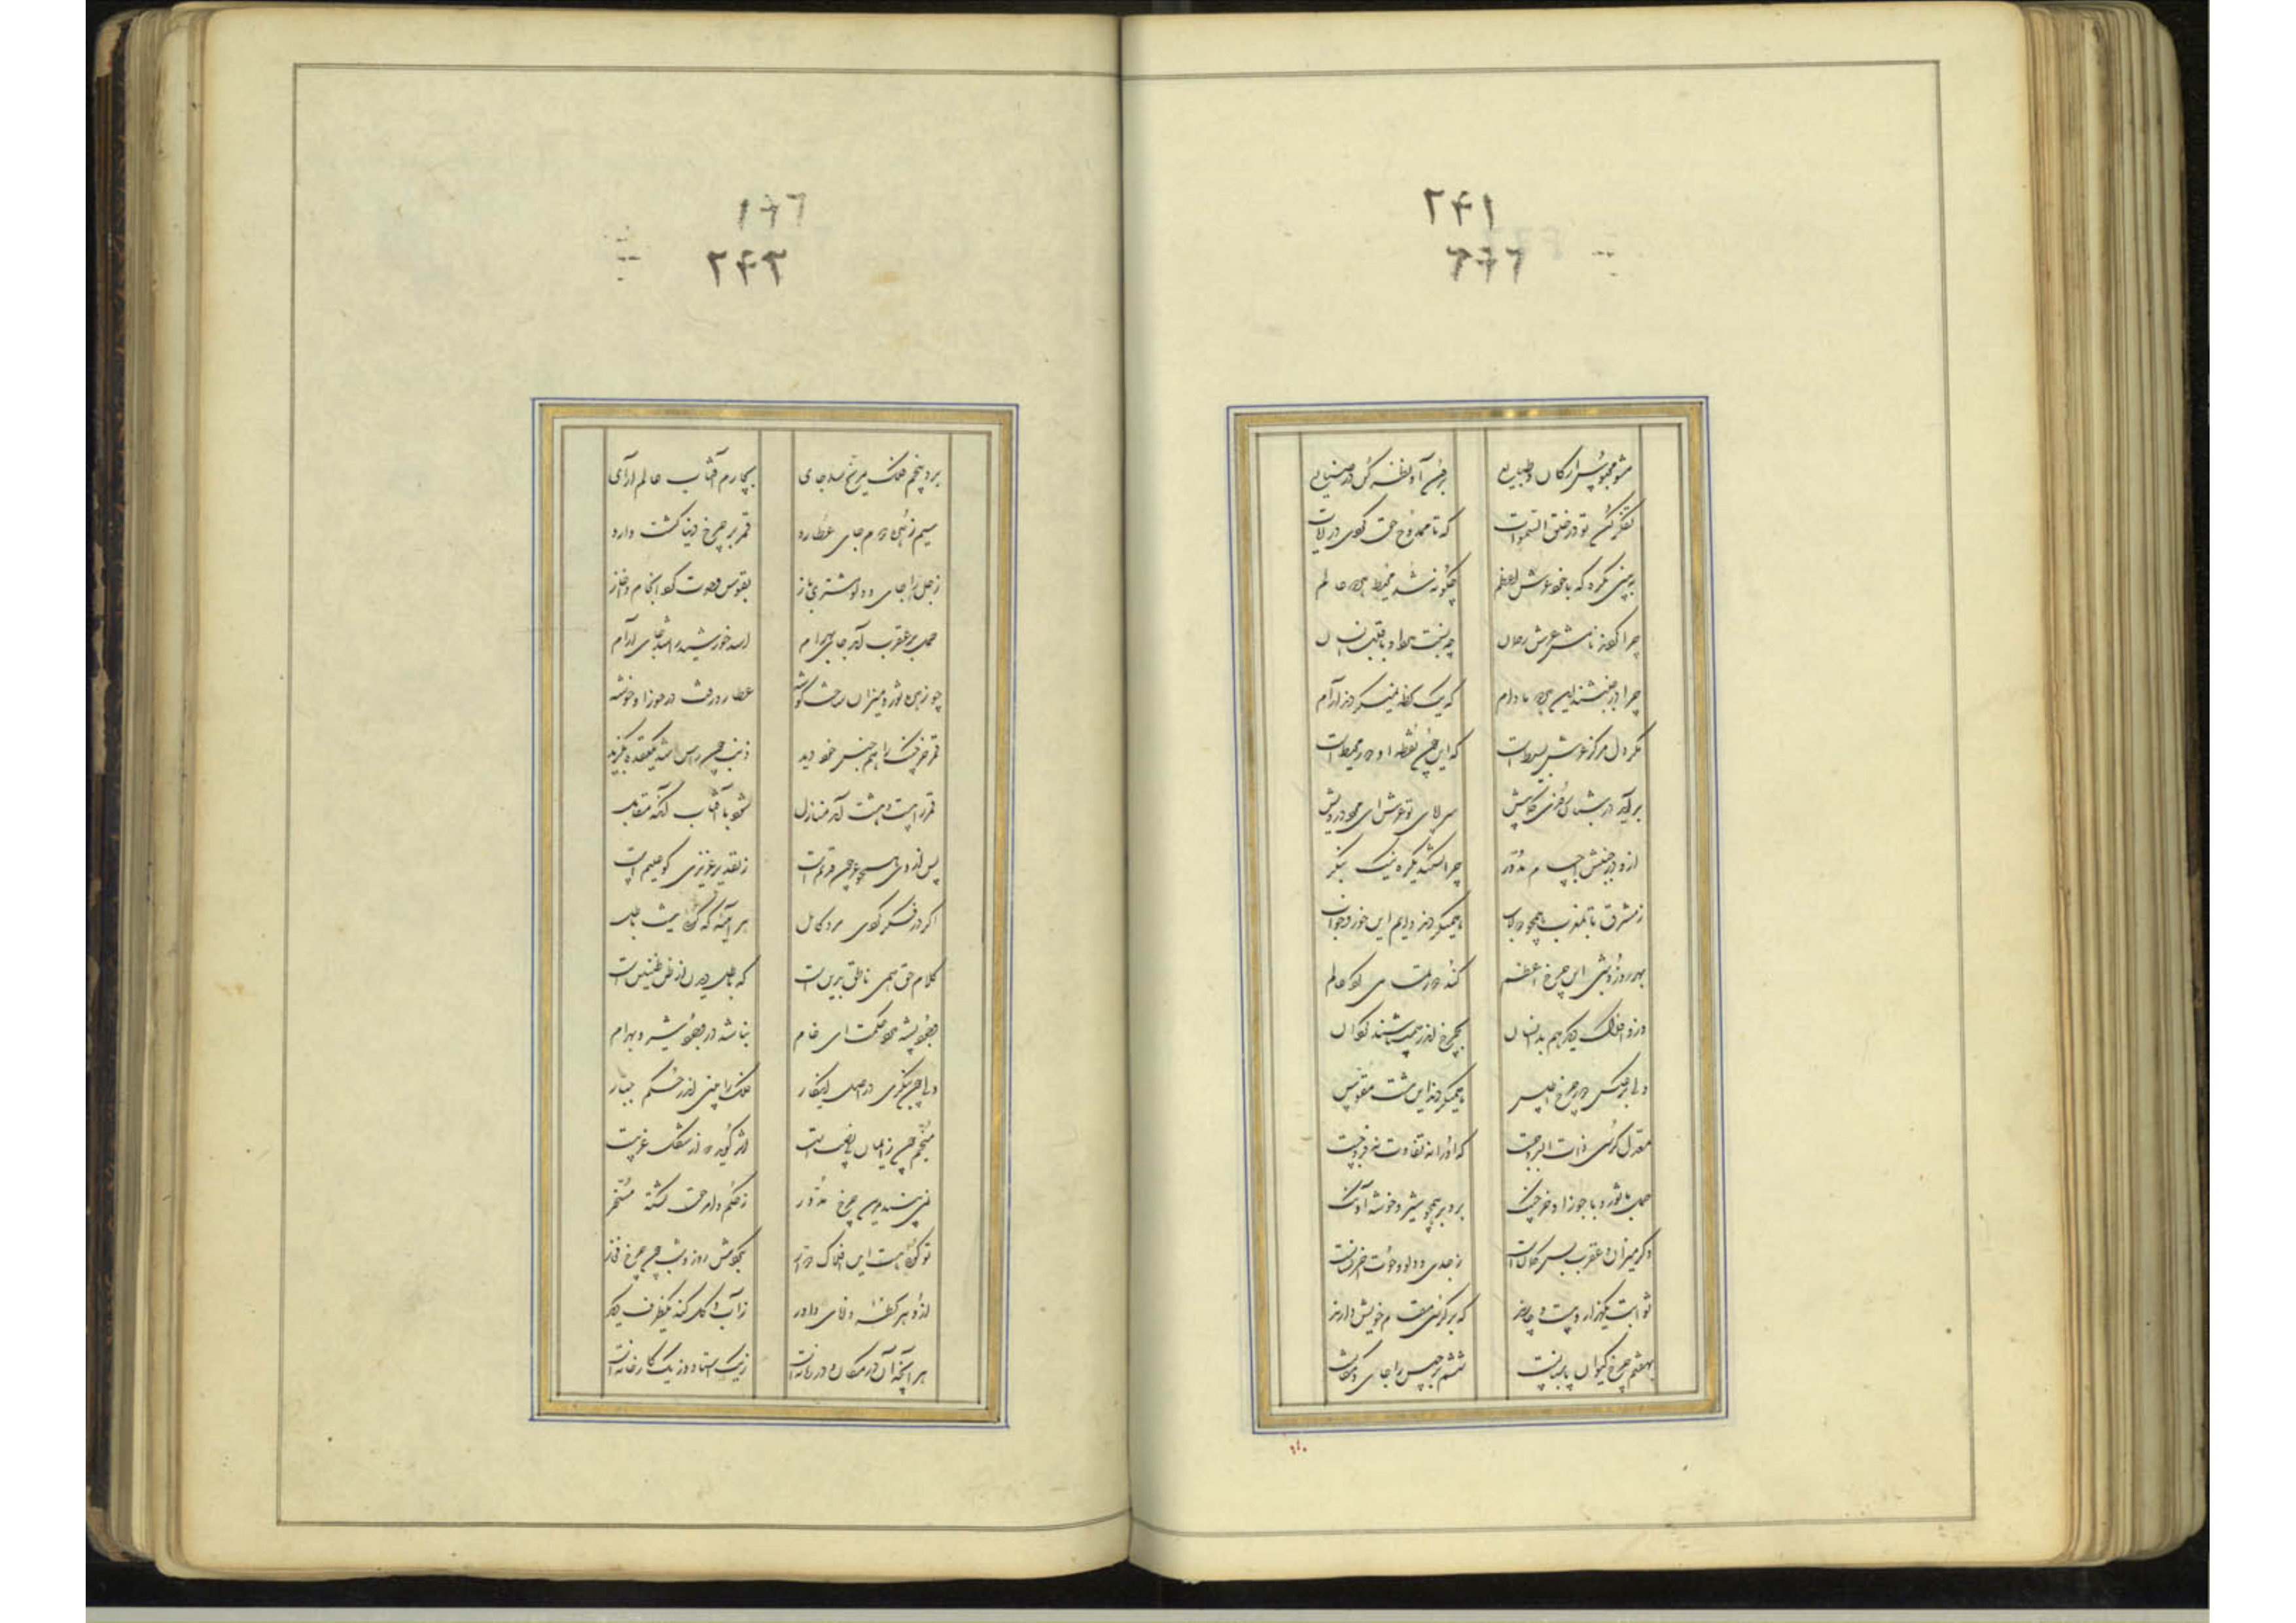 ۲۴۱
مشو محبوس ارکان و طبایع برون آ و نظر کن در صنایع
تفکر کن تو در خلق السموات که تا ممدوح حق گردی در آیات
ببین یکره که تا خود عرش اعظم چگونه شد محیط هر دو عالم
چرا کردند نامش عرش رحمان چه نسبت دارد او با قلب انسان
چرا در جنبشند این هر دو مادام که یک لحظه نمیگیرند آرام
مگر دل مرکز عرش بسیط است که این چون نقطه او دور محیط است
برآید در شبانروزی کمابیش سراپای تو عرش ای مرد درویش
ازو در جنبش اجسام مدور چرا گشتند یکره نیک بنگر
ز مشرق تا بمغرب همچو دولاب همیگردند دایم این خور و خواب
بهر روز و شبی این چرخ اعظم کند دور تمامی گرد عالم
وزو افلاک دیگر هم بدینسان بچرخ اندر همیباشند گردان
ولی برعکس دور چرخ اطلس همیگردند این هشت مقوس
معدل کرسی ذات البروجست که او را نه تفاوت نه فروجست
حمل با ثور و با جوزا و خرچنگ برو بر همچو شیر و خوشه آونگ
دگر میزان و عقرب پس کمان است ز جدی و دلو و حوت آنجا نشانست
ثوابت یکهزار و بیست و چارند که بر کرسی مقام خویش دارند
بهفتم چرخ کیوان پاسبانست ششم برجیس را جای و مکانست
۲۴۲
بود پنجم فلک مریخ را جای بچارم آفتاب عالم آرای
سیم زهره دوم جای عطارد قمر بر چرخ دنیا گشت وارد
زحل را جدی و دلو و مشتری باز بقوس و حوت کرد انجام و آغاز
حمل با عقرب آمد جای بهرام اسد خورشید را شد جای آرام
چو زهره ثور و میزان ساخت گوشه عطارد رفت در جوزا و خوشه
قمر خرچنگ را همجنس خود دید ذنب چون راس شد یکعقده بگزید
قمر را بیست و هشت آمد منازل شود با آفتاب آنگه مقابل
پس از وی همچو عرجون قدیم است ز تقدیر عزیزی کو علیم است
اگر در فکر گردی مرد کامل هر آینه که گویی نیست باطل
کلام حق همی ناطق برین است که باطل دیدن از ظن لعین است
وجود پشه دارد حکمت ای خام نباشد در وجود تیر و بهرام
ولی چون بنگری در اصل اینکار فلک را بینی اندر حکم جبار
منجم چون ز ایمان بی نصیب است اثر گوید که از شکل غریبست
نمی بیند که این چرخ مدور ز حکم و امر حق گشته مسخر
تو گویی هست این افلاک دوار بگردش روز و شب چون چرخ فخار
ازو هر لحظهٔ دانای داور ز آب و گل کند یکظرف دیگر
هر آنچه آن در مکان و در زمانست ز یک استاد و از یک کارخانست